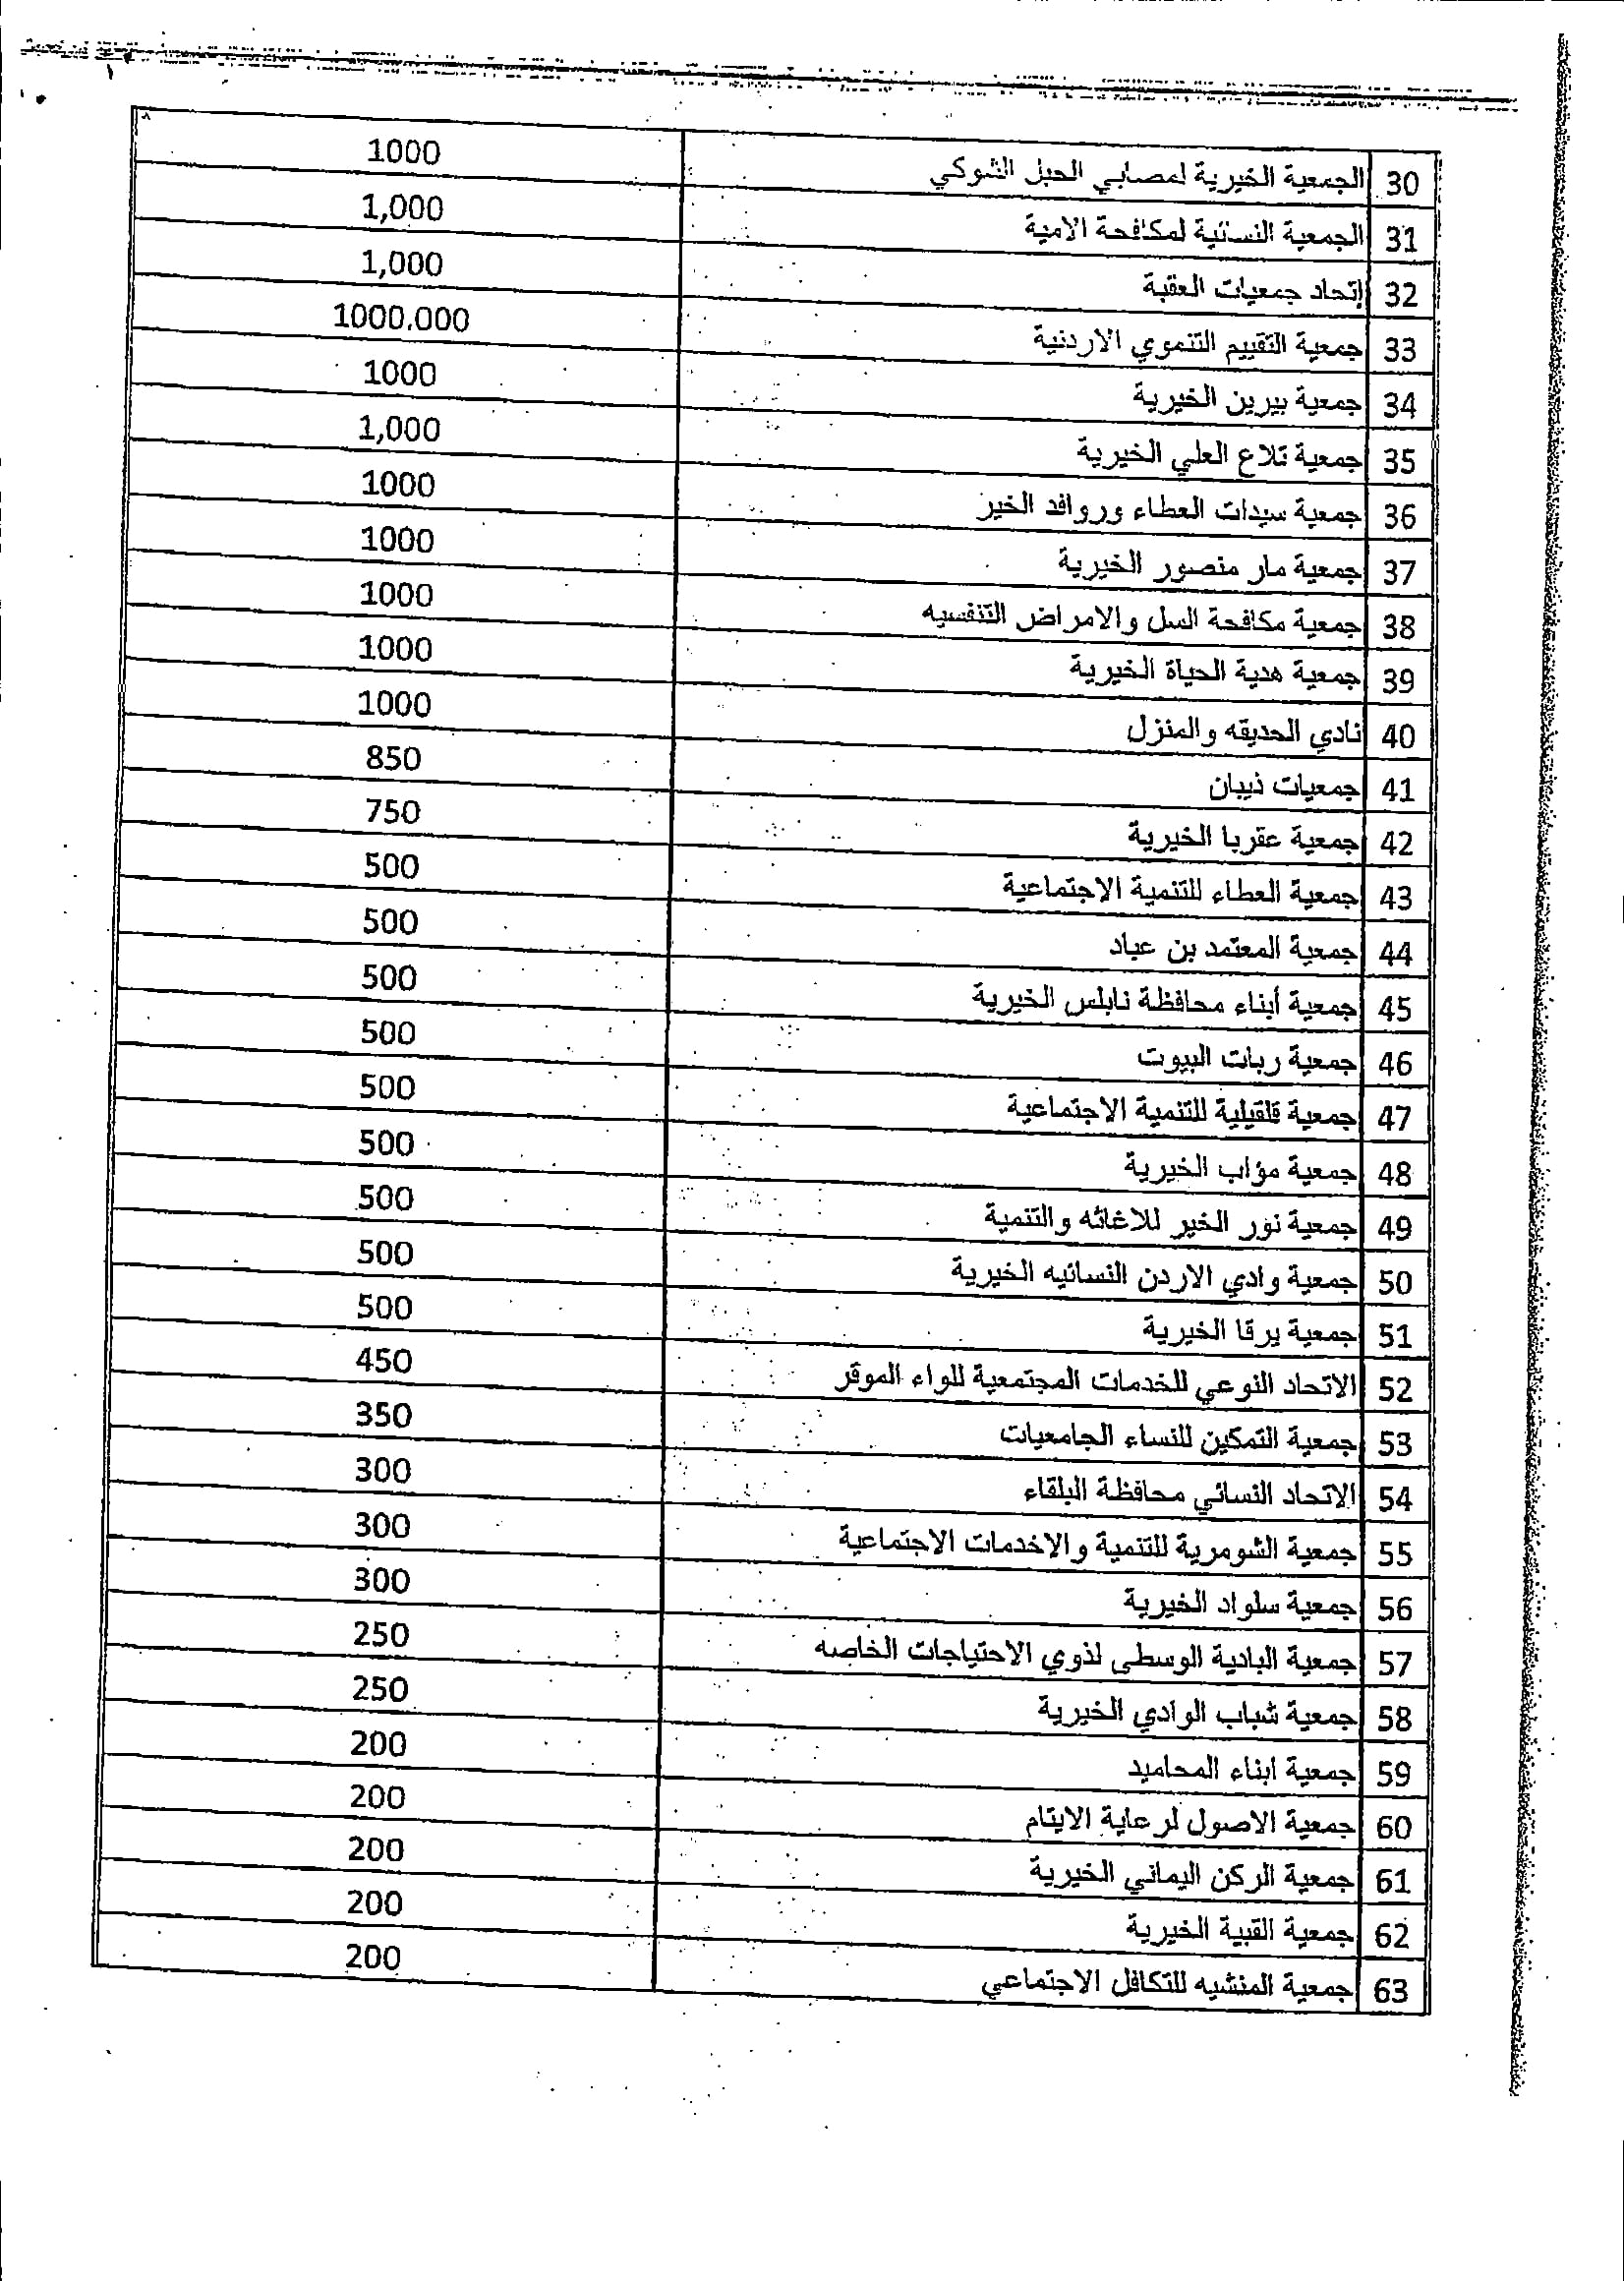 30 الجمعية الخيرية لمصابي الحبل الشوكي 1000
31 الجمعية النسائية لمكافحة الامية 1,000
32 إتحاد جمعيات العقبة 1,000
33 جمعية التقييم التنموي الاردنية 1000.000
34 جمعية بيرين الخيرية 1000
35 جمعية تلاع العلي الخيرية 1,000
36 جمعية سيدات العطاء وروافد الخير 1000
37 جمعية مار منصور الخيرية 1000
38 جمعية مكافحة السل والامراض التنفسيه 1000
39 جمعية هدية الحياة الخيرية 1000
40 نادي الحديقه والمنزل 1000
41 جمعيات ذيبان 850
42 جمعية عقربا الخيرية 750
43 جمعية العطاء للتنمية الاجتماعية 500
44 جمعية المعتمد بن عباد 500
45 جمعية أبناء محافظة نابلس الخيرية 500
46 جمعية ربات البيوت 500
47 جمعية قلقيلية للتنمية الاجتماعية 500
48 جمعية مؤاب الخيرية 500
49 جمعية نور الخير للاغاثه والتنمية 500
50 جمعية وادي الاردن النسائيه الخيرية 500
51 جمعية يرقا الخيرية 500
52 الاتحاد النوعي للخدمات المجتمعية للواء الموقر 450
53 جمعية التمكين للنساء الجامعيات 350
54 الاتحاد النسائي محافظة البلقاء 300
55 جمعية الشومرية للتنمية والاخدمات الاجتماعية 300
56 جمعية سلواد الخيرية 300
57 جمعية البادية الوسطى لذوي الاحتياجات الخاصه 250
58 جمعية شباب الوادي الخيرية 250
59 جمعية ابناء المحاميد 200
60 جمعية الاصول لرعاية الايتام 200
61 جمعية الركن اليماني الخيرية 200
62 جمعية القبية الخيرية 200
63 جمعية المنشيه للتكافل الاجتماعي 200